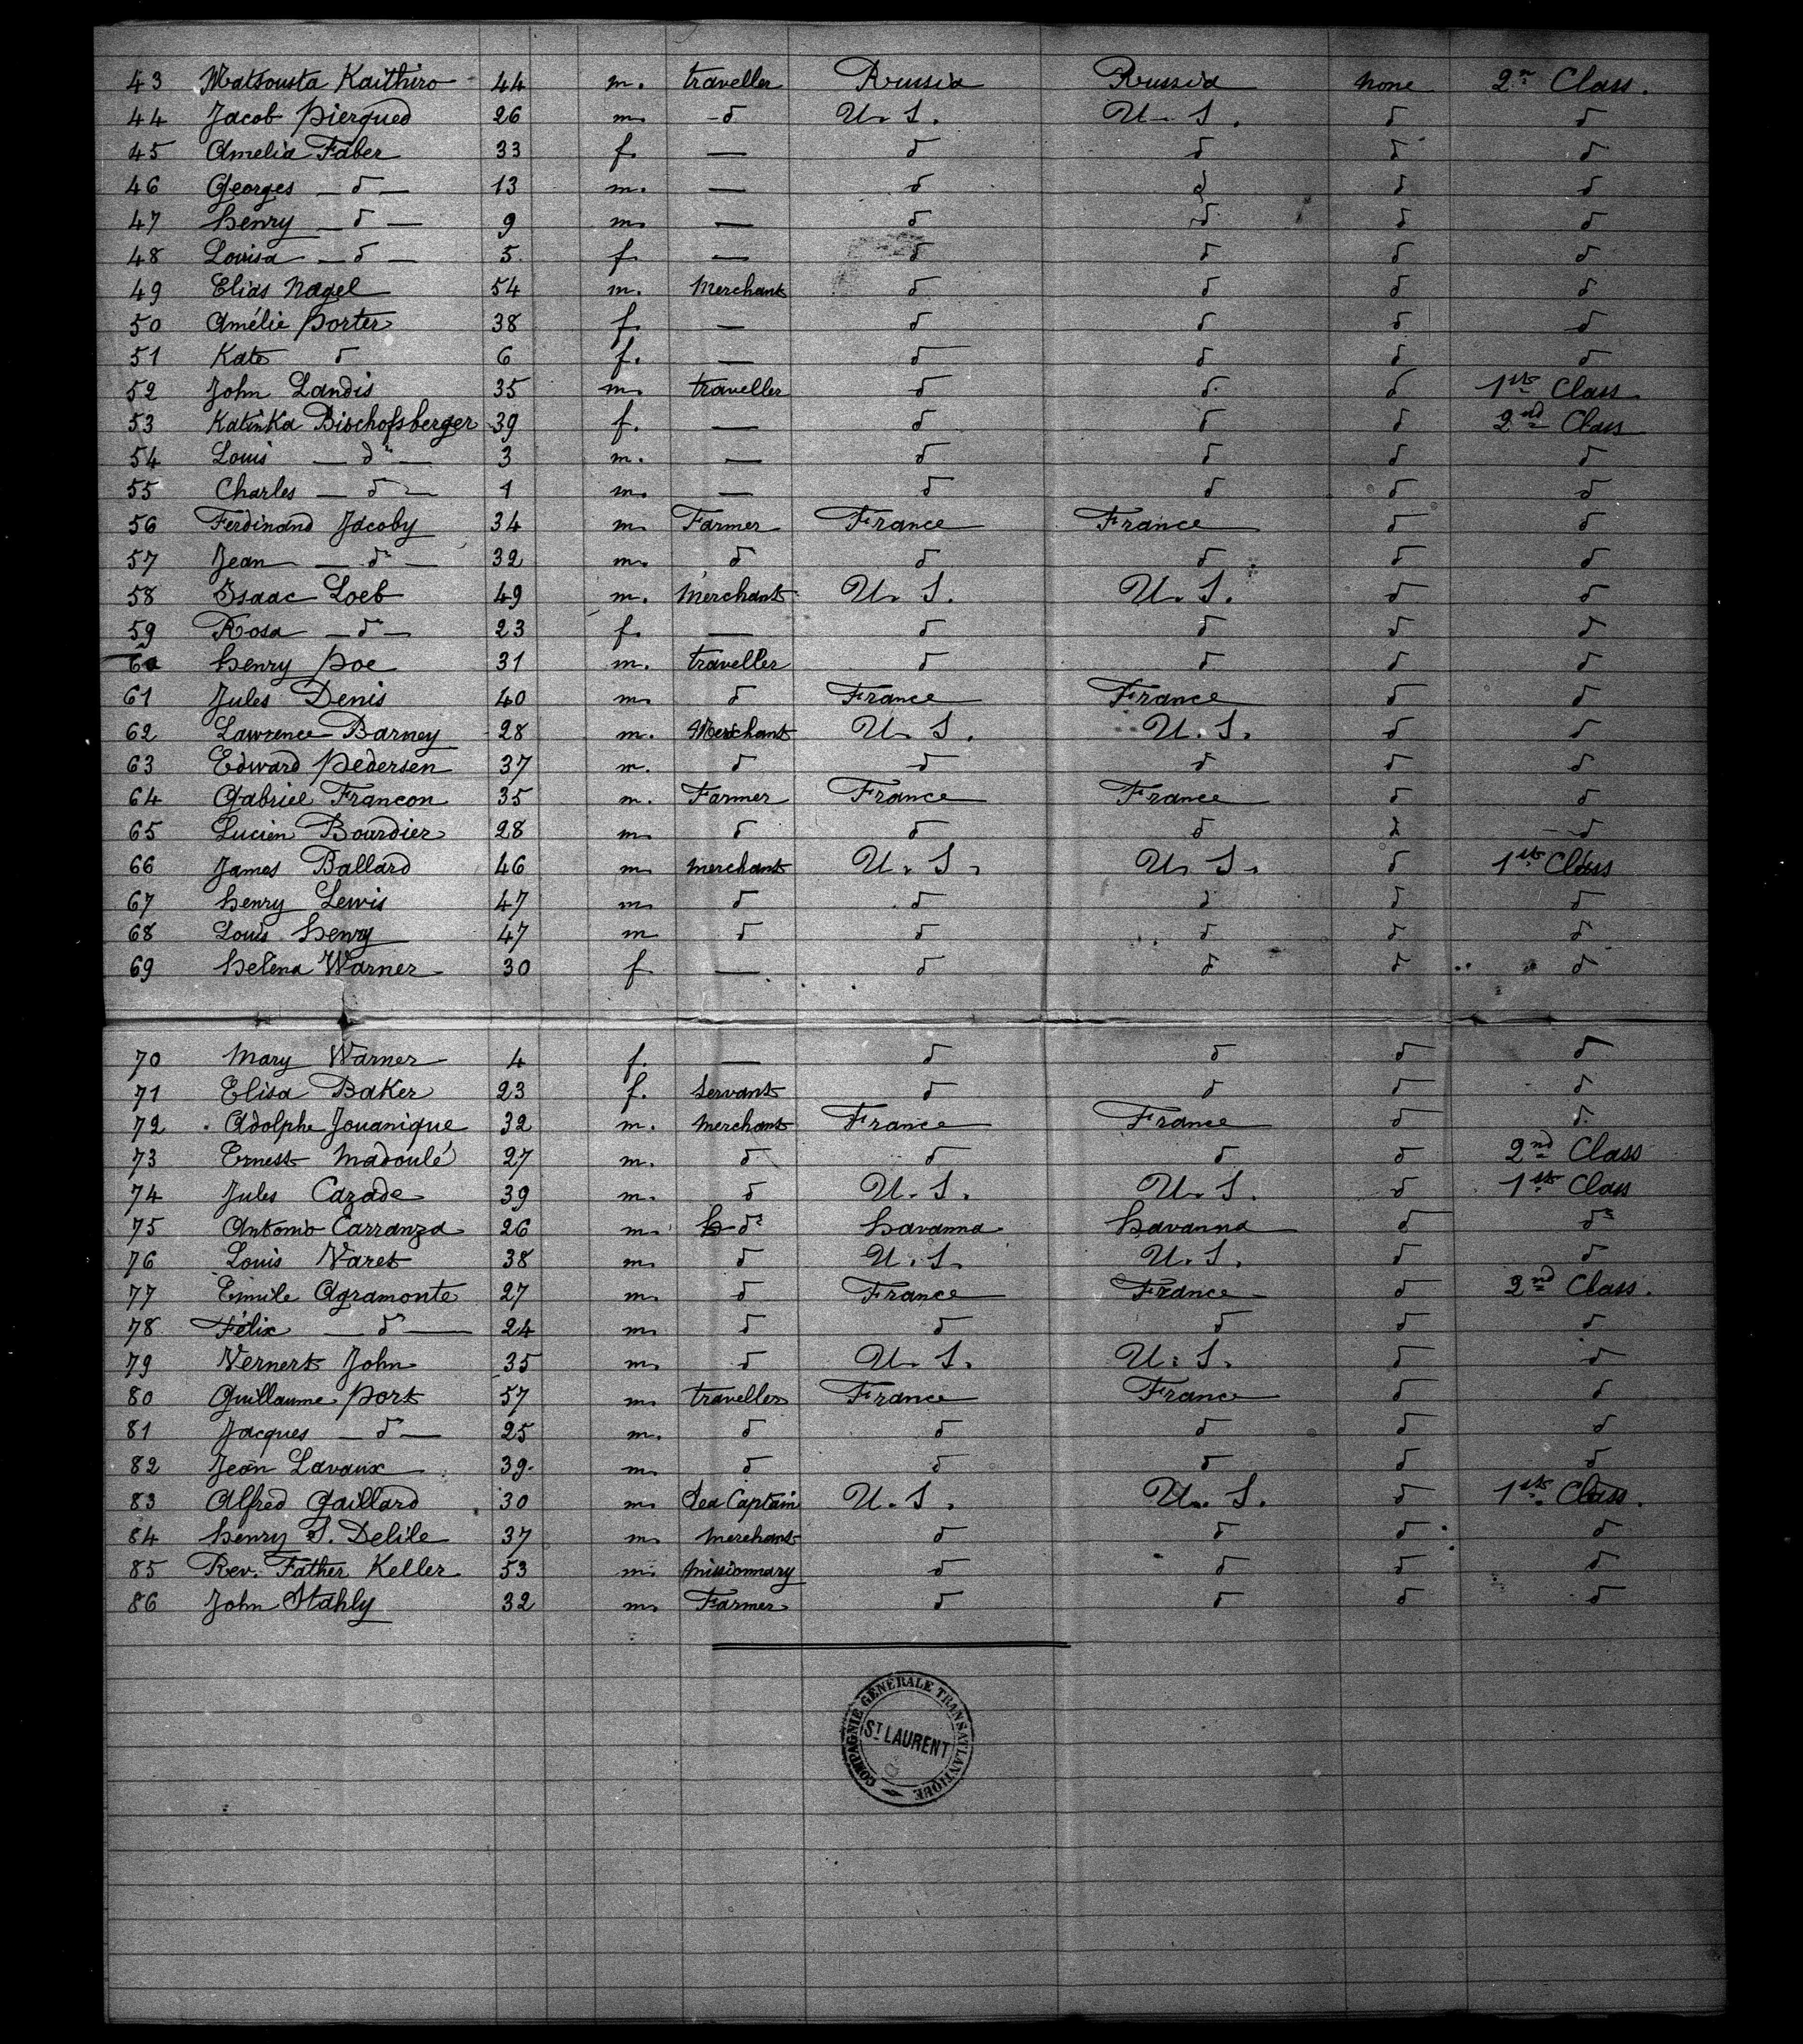 43 Matsousta Kaithiro 44 m. traveller Russia Russia none 2n Class.
44 Jacob Pierqued 26 m. d U. S. U. S. d d
45 Amelia Faber 33 f. — d d d d
46 Georges — d — 13 m. — d d d d
47 Henry — d — 9 m. — d d d d
48 Louisa — d — 5. f. — d d d d
49 Elias Nagel 54 m. Merchant d d d d
50 Amélie Porter 38 f. — d d d d
51 Kate d 6 f. — d d d d
52 John Landis 35 m. traveller d d d 1st Class
53 Katinka Bischofsberger 39 f. — d d d 2nd Class
54 Louis — do — 3 m. — d d d d
55 Charles — d — 1 m. — d d d d
56 Ferdinand Jacoby 34 m. Farmer France France d d
57 Jean — do — 32 m. d d d d d
58 Isaac Loeb 49 m. Merchant U. S. U. S. d d
59 Rosa — do — 23 f. — d d d d
60 Henry Poe 31 m. traveller d d d d
61 Jules Denis 40 m. d France France d d
62 Lawrence Barney 28 m. Merchant U. S. U. S. d d
63 Edward Pedersen 37 m. d d d d d
64 Gabriel Francon 35 m. Farmer France France d d
65 Lucien Bourdier 28 m. d d d d d
66 James Ballard 46 m. merchant U. S. U. S. d 1st Class
67 Henry Lewis 47 m. d d d d d
68 Louis Henry 47 m d d d d d
69 Helena Warner 30 f. — d d d d
70 Mary Warner 4 f. — d d d d
71 Elisa Baker 23 f. Servant d d d d
72 Adolphe Jouanique 32 m. merchant France France d d.
73 Ernest Madoulé 27 m. d d d d 2nd Class
74 Jules Cazade 39 m. d U. S. U. S. d 1st Class
75 Antonio Carranza 26 m. do Havanna Havanna d do
76 Louis Varet 38 m. d U. S. U. S. d d
77 Emile Agramonte 27 m. d France France d 2nd Class.
78 Félix — do — 24 m. d d d d d
79 Vernert John 35 m. d U. S. U. S. d d
80 Guillaume Port 57 m. traveller France France d d
81 Jacques — do — 25 m. d d d d d
82 Jean Lavaux 39. m. d d d d d
83 Alfred Gaillard 30 m. Sea Captain U. S. U. S. d 1st Class.
84 Henry S. Delile 37 m. merchant d d d d
85 Rev. Father Keller 53 m. missionnary d d d d
86 John Stahly 32 m. Farmer d d d d
COMPAGNIE GÉNÉRALE TRANSATLANTIQUE
ST LAURENT